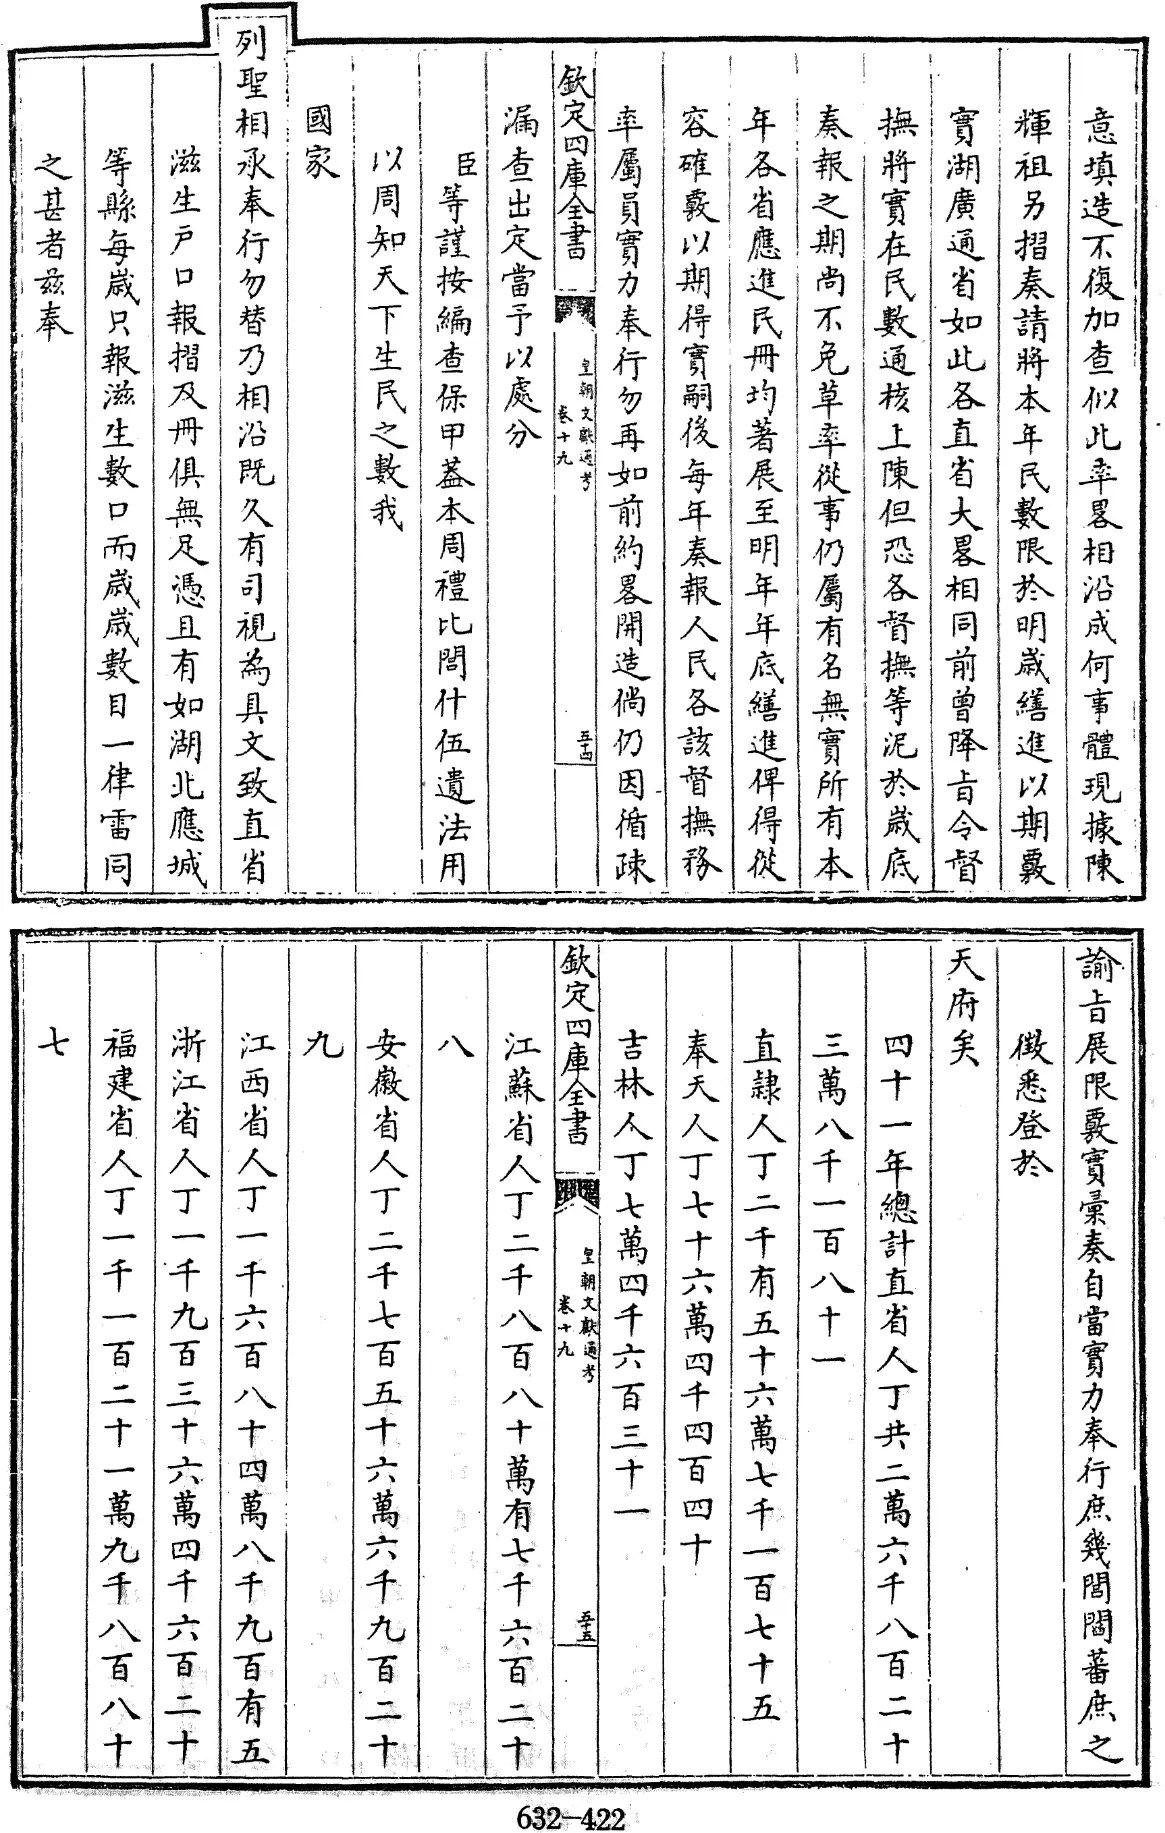 意填造不復加查似此率畧相沿成何事體現據陳
輝祖另摺奏請將本年民數限於明歳繕進以期覈
實湖廣通省如此各直省大畧相同前曾降㫖令督
撫將實在民數通核上陳但恐各督撫等泥於歳底
奏報之期尚不免草率從事仍屬有名無實所有本
年各省應進民冊均著展至明年年底繕進俾得從
容確覈以期得實嗣後每年奏報人民各該督撫務
率屬員實力奉行勿再如前約畧開造倘仍因循疎
欽定四庫全書
皇朝文獻通考
卷十九
五十四
漏查出定當予以處分
臣等謹按編查保甲葢本周禮比閭什伍遺法用
以周知天下生民之數我
國家
列聖相承奉行勿替乃相沿既久有司視為具文致直省
滋生戸口報摺及冊俱無足憑且有如湖北應城
等縣每歳只報滋生數口而歳歳數目一律雷同
之甚者兹奉
諭㫖展限覈實彚奏自當實力奉行庶幾閭閻蕃庶之
徴悉登於
天府矣
四十一年總計直省人丁共二萬六千八百二十
三萬八千一百八十一
直隷人丁二千有五十六萬七千一百七十五
奉天人丁七十六萬四千四百四十
吉林人丁七萬四千六百三十一
欽定四庫全書
皇朝文獻通考
卷十九
五十五
江蘇省人丁二千八百八十萬有七千六百二十
八
安徽省人丁二千七百五十六萬六千九百二十
九
江西省人丁一千六百八十四萬八千九百有五
浙江省人丁一千九百三十六萬四千六百二十
福建省人丁一千一百二十一萬九千八百八十
七
632-422